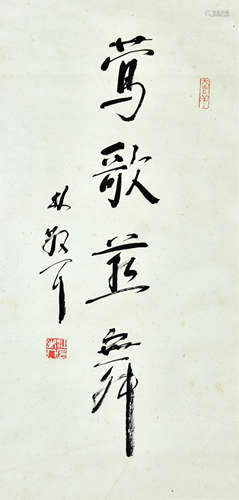 莺歌燕舞
林散耳